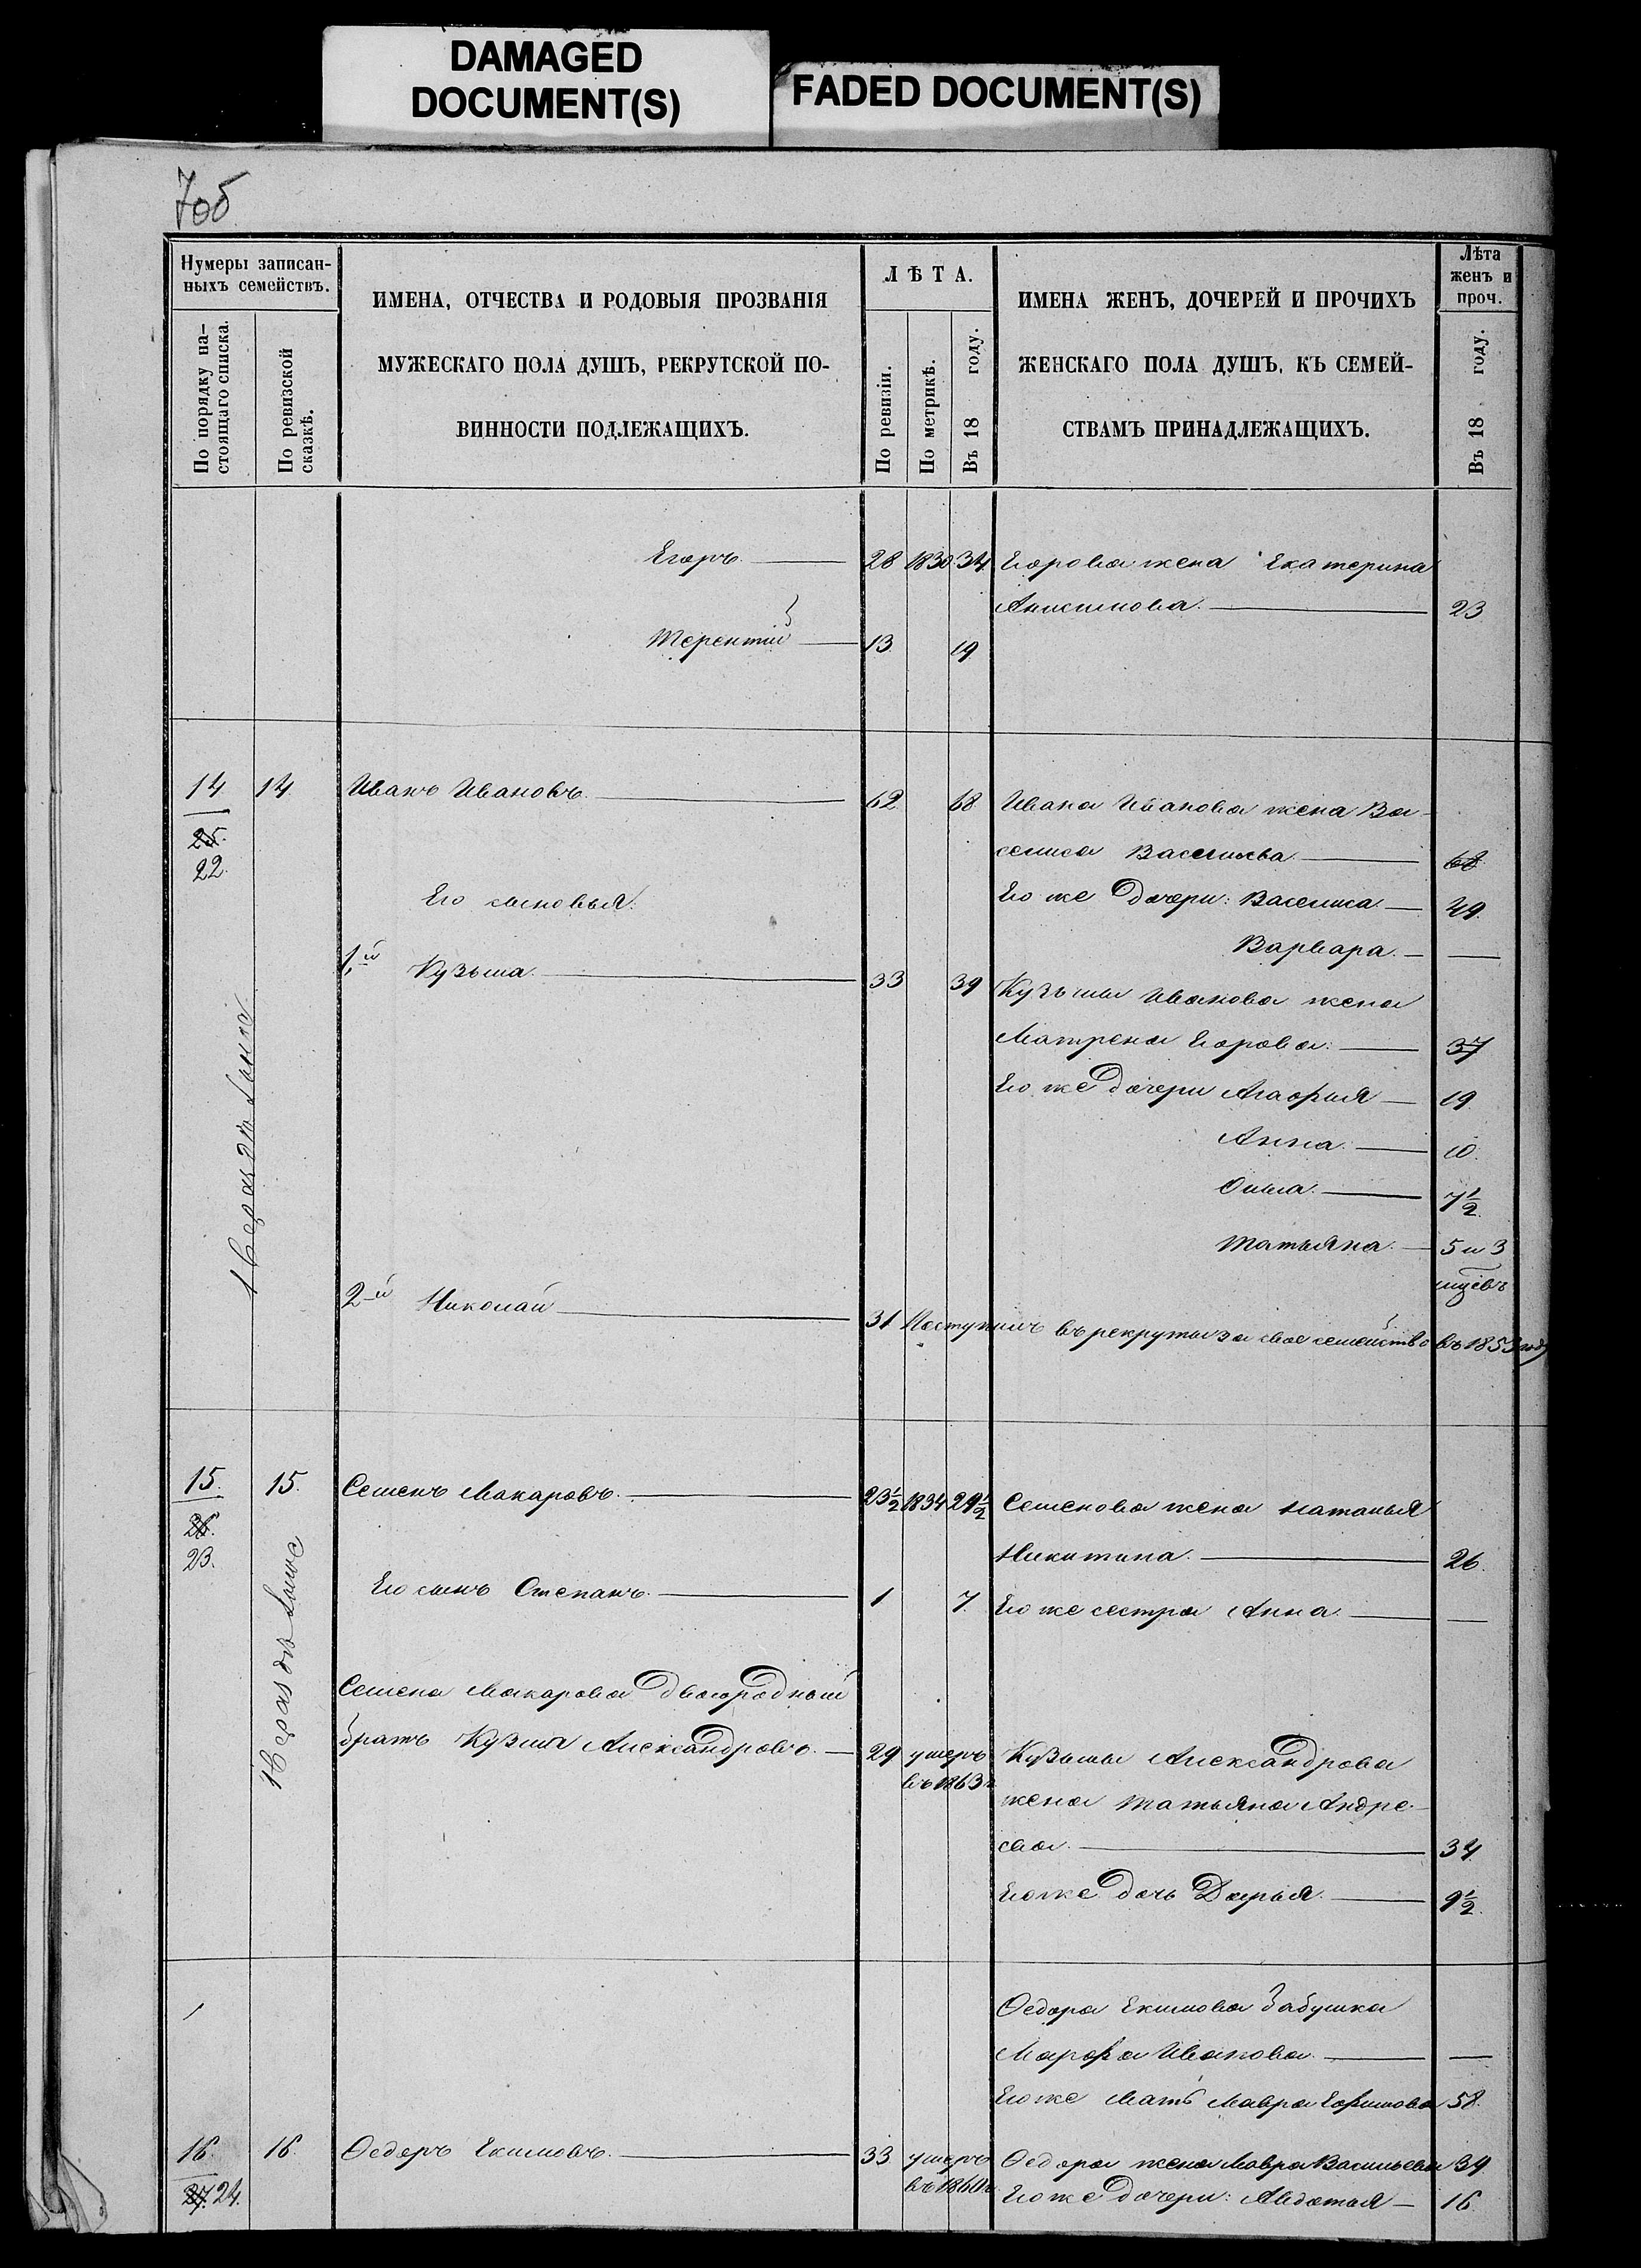 DAMAGED
DOCUMENT(S)
FADED DOCUMENT(S)
7об
Нумеры записан-
ныхъ семействъ.
По порядку на-
стоящаго списка.
По ревизской
сказкѣ.
ИМЕНА, ОТЧЕСТВА И РОДОВЫЯ ПРОЗВАНІЯ
МУЖЕСКАГО ПОЛА ДУШЪ, РЕКРУТСКОЙ ПО-
ВИННОСТИ ПОДЛЕЖАЩИХЪ.
ЛѢТА.
По ревизіи.
По метрикѣ.
Въ 18 году.
ИМЕНА ЖЕНЪ, ДОЧЕРЕЙ И ПРОЧИХЪ
ЖЕНСКАГО ПОЛА ДУШЪ, КЪ СЕМЕЙ-
СТВАМЪ ПРИНАДЛЕЖАЩИХЪ.
Лѣта
женъ и
проч.
Въ 18 году.
Егоръ 28 1830 34 Егорова жена Екатерина
Анисимова 23
Терентій 13 19
14 14 Иванъ Ивановъ 62 68 Ивана Иванова жена Ва-
25.
22.
силиса Васильева 68
Его сыновья:
Его же дочери: Василиса 49
Варвара
1й Кузьма 33 39 Кузьмы Иванова жена
Матрена Егорова: 37
Его же дочери Агафья 19
Анна 10
Ольга 7½
Татьяна 5 и 3
мцевъ
2й Николай 31 Поступилъ въ рекруты за свое семейство въ 1853 году
15. 15. Семенъ Макаровъ 23½ 1834 29½ Семенова жена Наталья
26.
23.
Никитина 26.
Его сынъ Степанъ 1 7. Его же сестра Анна
Семена Макарова двоюродный
братъ Кузьма Александровъ 29 умеръ
въ 1863 г.
Кузьмы Александрова
жена Татьяна Андре-
ева 34
Его же дочь Дарья 9½
Федора Екимова бабушка
Марфа Иванова
Его же мать Мавра Ефимова 58.
16. 16. Федоръ Екимовъ 33 умеръ
въ 1860 г.
Федора жена Мавра Васильева 39
27. 24. Его же дочери: Авдотья 16